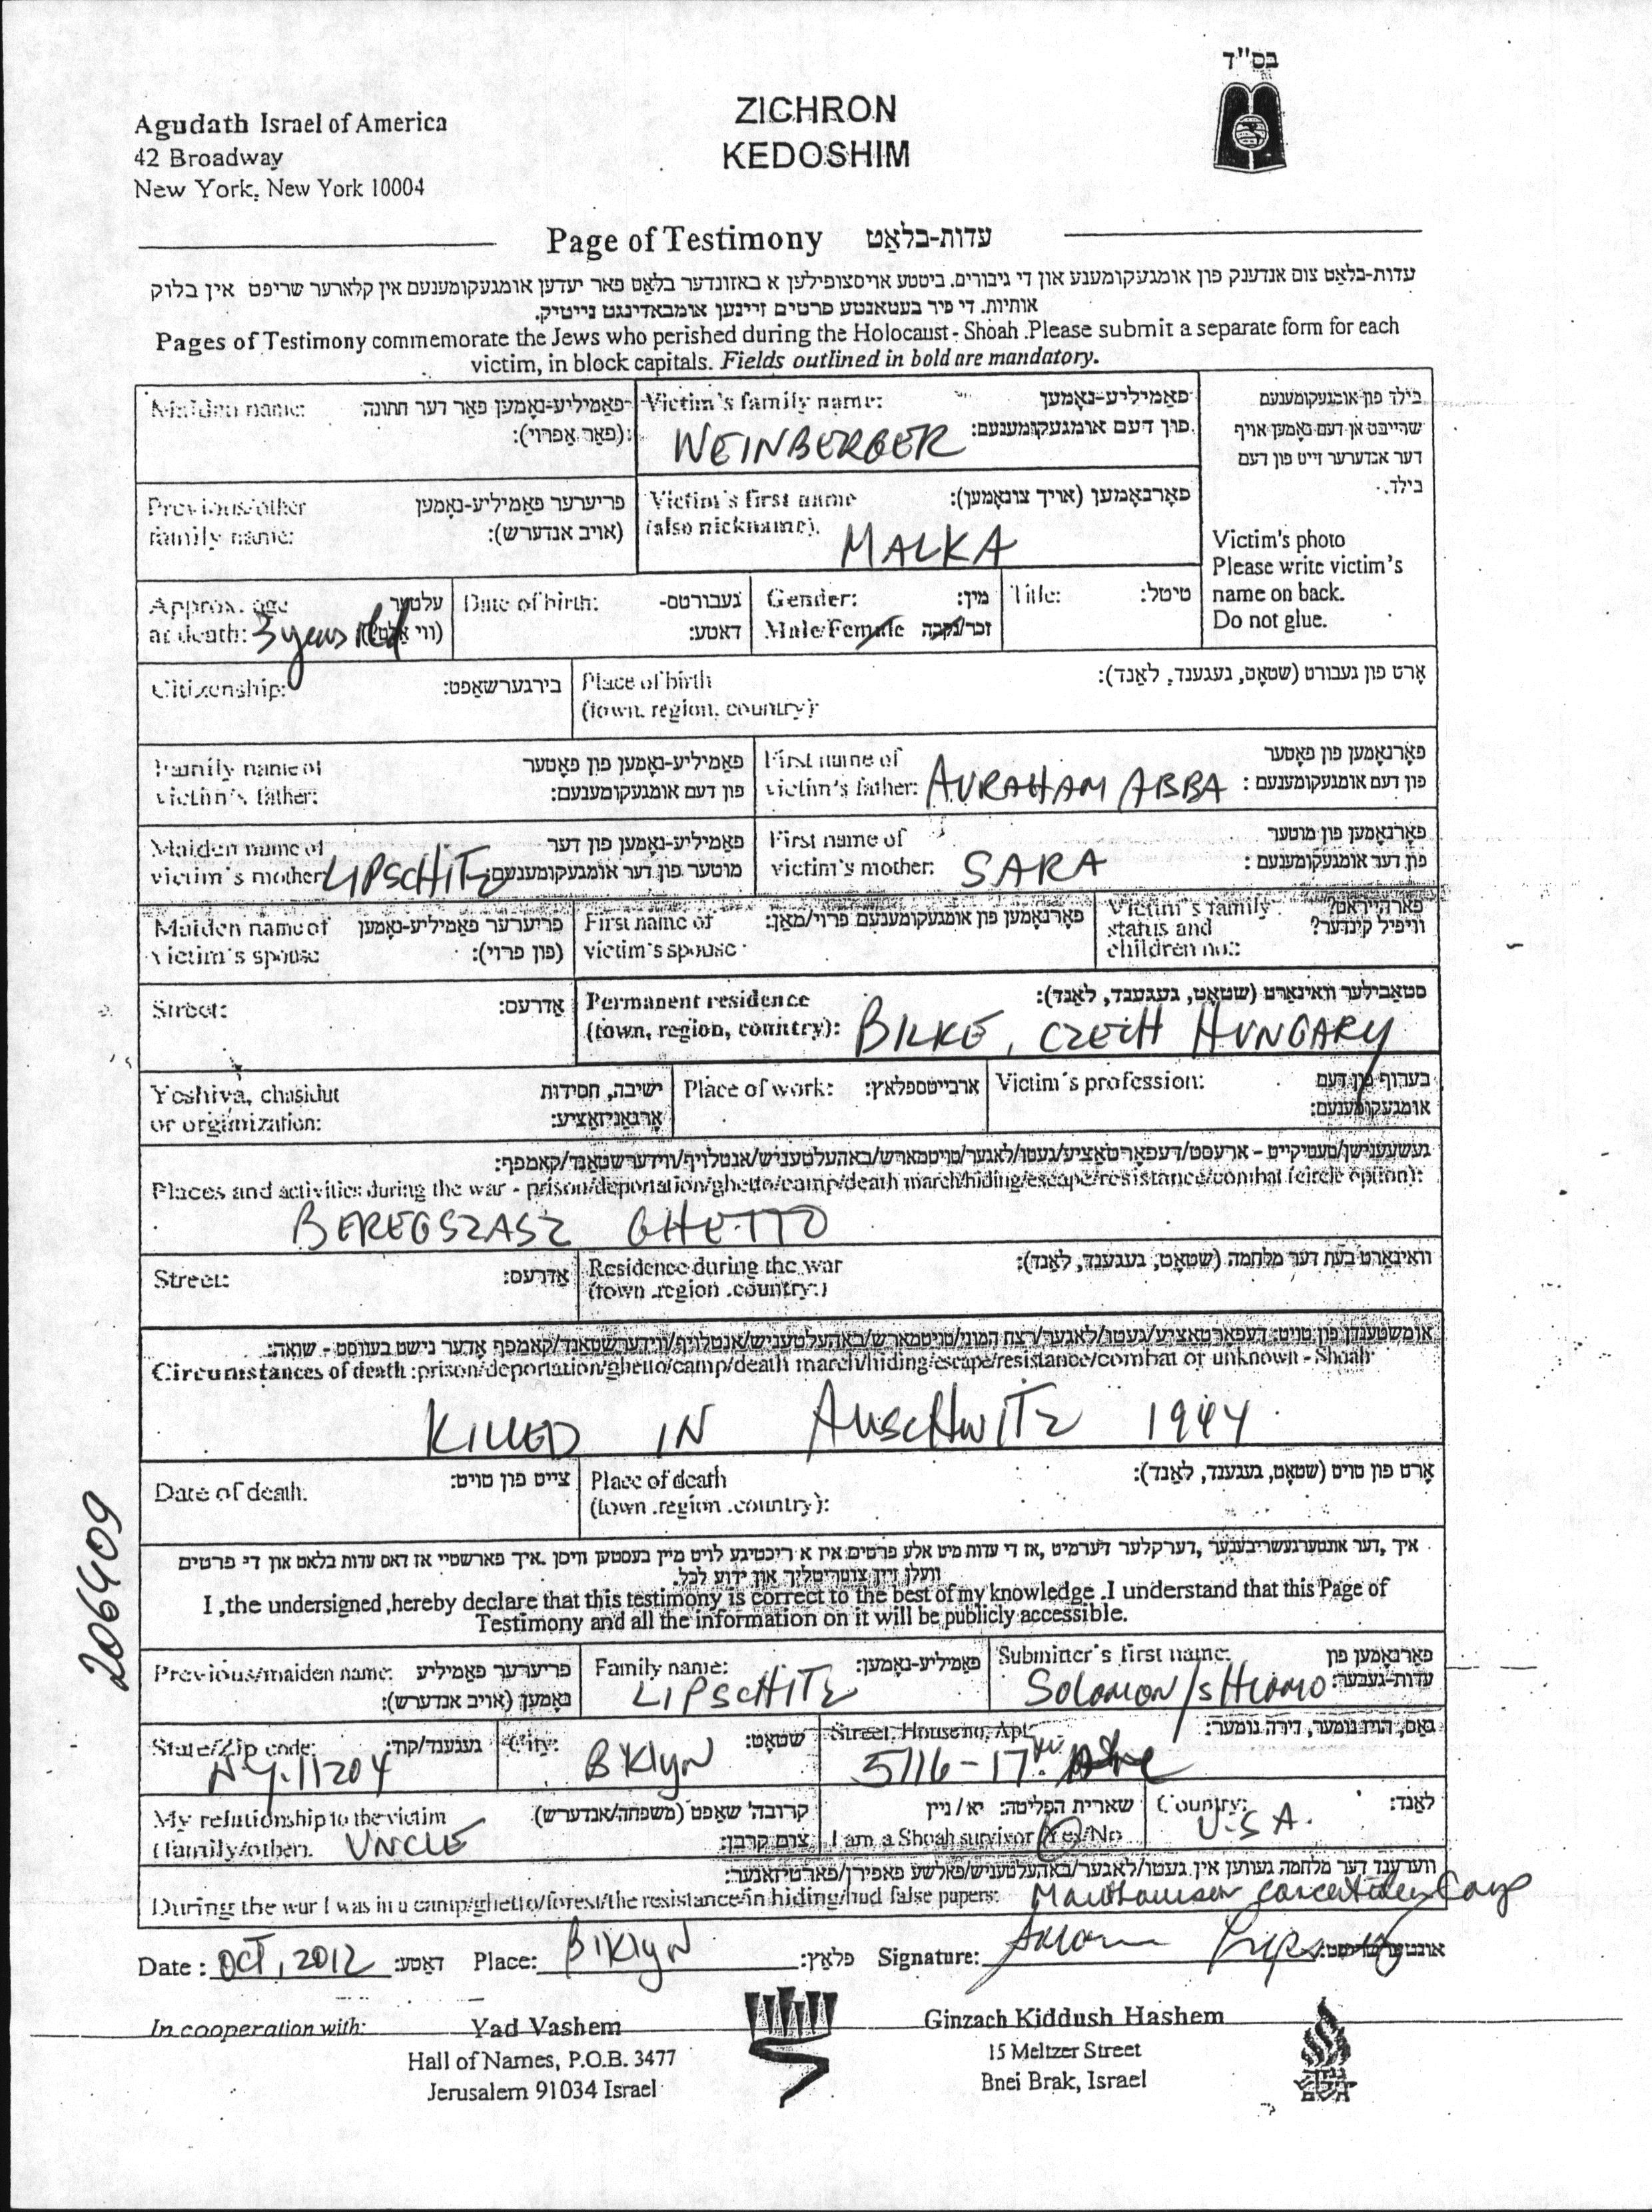 בס"ד
Agudath Israel of America
42 Broadway
New York, New York 10004
ZICHRON
KEDOSHIM
Page of Testimony עדות-בלאַט
עדות-בלאַט צום אנדענק פון אומגעקומענע און די גיבורים. ביטטע אויסצופילען א באזונדער בלאַט פאר יעדען אומגעקומענעם אין קלארער שריפט אין בלוק
אותיות. די פיר בעטאנטע פרטים זיינען אומבאדינגט נייטיק.
Pages of Testimony commemorate the Jews who perished during the Holocaust - Shoah .Please submit a separate form for each
victim, in block capitals. Fields outlined in bold are mandatory.
Maiden name: פאַמיליע-נאָמען פאַר דער חתונה
(פאַר אַפרוי):
Victim's family name: פאַמיליע-נאָמען
פון דעם אומגעקומענעם:
WEINBERGER
בילד פון אומגעקומענעם
שרייבט אן דעם נאָמען אויף
דער אנדערער זייט פון דעם
בילד.
Victim's photo
Please write victim's
name on back.
Do not glue.
Previous/other פריערער פאַמיליע-נאָמען
family name: (אויב אנדערש):
Victim's first name פאָרנאָמען (אויך צונאָמען):
(also nickname).
MALKA
Approx. age עלטער
at death: 3 years old
Date of birth: געבורטס-
דאטע:
Gender: מין:
Male/Female זכר/נקבה
Title: טיטל:
Citizenship: בירגערשאַפט:
Place of birth אָרט פון געבורט (שטאָט, געגענד, לאַנד):
(town, region, country):
Family name of פאַמיליע-נאָמען פון פאָטער
victim's father: פון דעם אומגעקומענעם:
First name of פאָרנאָמען פון פאָטער
victim's father: AVRAHAM ABBA פון דעם אומגעקומענעם :
Maiden name of פאַמיליע-נאָמען פון דער
victim's mother: LIPSCHITZ מוטער פון דער אומגעקומענעם:
First name of פאָרנאָמען פון מוטער
victim's mother: SARA פון דער אומגעקומענעם :
Maiden name of פריערער פאַמיליע-נאָמען
victim's spouse (פון פרוי):
First name of פאָרנאָמען פון אומגעקומענעם פרוי/מאַן:
victim's spouse :
Victim's family פארהייראט?
status and וויפיל קינדער?
children no.:
Street: אַדרעס:
Permanent residence סטאַבילער וואוינאָרט (שטאָט, געגענד, לאַנד):
(town, region, country): BILKE, CZECH HUNGARY
Yeshiva, chasidut ישיבה, חסידות
or organization: אָרגאַניזאַציע:
Place of work: ארבייטספלאץ:
Victim's profession: בערוף פון דעם
אומגעקומענעם:
געשעענישן/טעטיקייט - ארעסט/דעפאָרטאַציע/געטו/לאַגער/טויטמארש/באהעלטעניש/אנטלויף/ווידערשטאַנד/קאמפף:
Places and activities during the war - prison/deportation/ghetto/camp/death march/hiding/escape/resistance/combat (circle option):
BEREGSZASZ GHETTO
Street: אַדרעס:
Residence during the war וואוינאָרט בעת דער מלחמה (שטאָט, געגענד, לאַנד):
(town .region .country:)
אומשטענדן פון טויט: דעפאָרטאַציע/געטו/לאַגער/רצח המוני/טויטמארש/באהעלטעניש/אנטלויף/ווידערשטאַנד/קאמפף אָדער נישט בעוואוסט - שואה:
Circumstances of death :prison/deportation/ghetto/camp/death march/hiding/escape/resistance/combat or unknown - Shoah
KILLED IN AUSCHWITZ 1944
Date of death. צייט פון טויט:
Place of death אָרט פון טויט (שטאָט, געגענד, לאַנד):
(town .region .country):
206409
איך ,דער אונטערגעשריבענער ,דערקלער דערמיט ,אז די עדות מיט אלע פרטים איז א ריכטיגע לויט מיין בעסטען וויסן .איך פארשטיי אז דאס עדות בלאט און די פרטים
וועלן זיין צוטריטליך און ידוע לכל.
I ,the undersigned ,hereby declare that this testimony is correct to the best of my knowledge .I understand that this Page of
Testimony and all the information on it will be publicly accessible.
Previous/maiden name: פריערער פאַמיליע
נאָמען (אויב אנדערש):
Family name: פאַמיליע-נאָמען:
LIPSCHITZ
Submitter's first name: פאָרנאָמען פון
עדות-געבער:
SOLOMON/SHLOMO
State/Zip code: געגענד/קוד:
N.Y. 11204
City: שטאָט:
BKlyN
Street, House no, Apt גאַס, הויז נומער, דירה נומער:
5116-17th Ave
My relationship to the victim קרובה' שאַפט (משפחה/אנדערש)
(family/other). UNCLE צום קרבן:
שארית הפליטה: יא / ניין
I am a Shoah survivor Yes/No
Country: לאַנד:
U.S.A.
ווערענד דער מלחמה געווען אין געטו/לאגער/באהעלטעניש/פאלשע פאפירן/פארטיזאנער:
During the war I was in a camp/ghetto/forest/the resistance/in hiding/had false papers: Mauthausen concentration Camp
Date : OCT, 2012 דאַטע: Place: BKlyN פלאַץ: Signature:
In cooperation with:
Yad Vashem
Hall of Names, P.O.B. 3477
Jerusalem 91034 Israel
Ginzach Kiddush Hashem
15 Meltzer Street
Bnei Brak, Israel